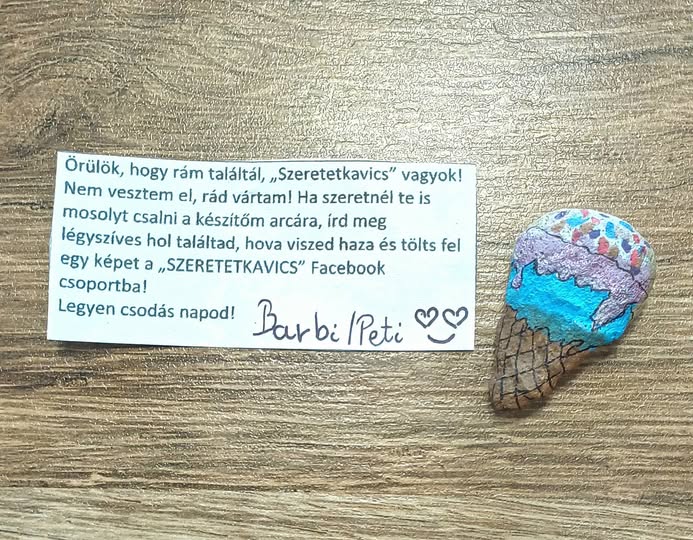 Örülök, hogy rám találtál, „Szeretetkavics” vagyok!
Nem vesztem el, rád vártam! Ha szeretnél te is
mosolyt csalni a készítőm arcára, írd meg
légyszíves hol találtad, hova viszed haza és tölts fel
egy képet a „SZERETETKAVICS” Facebook
csoportba!
Legyen csodás napod! Barbi/Peti